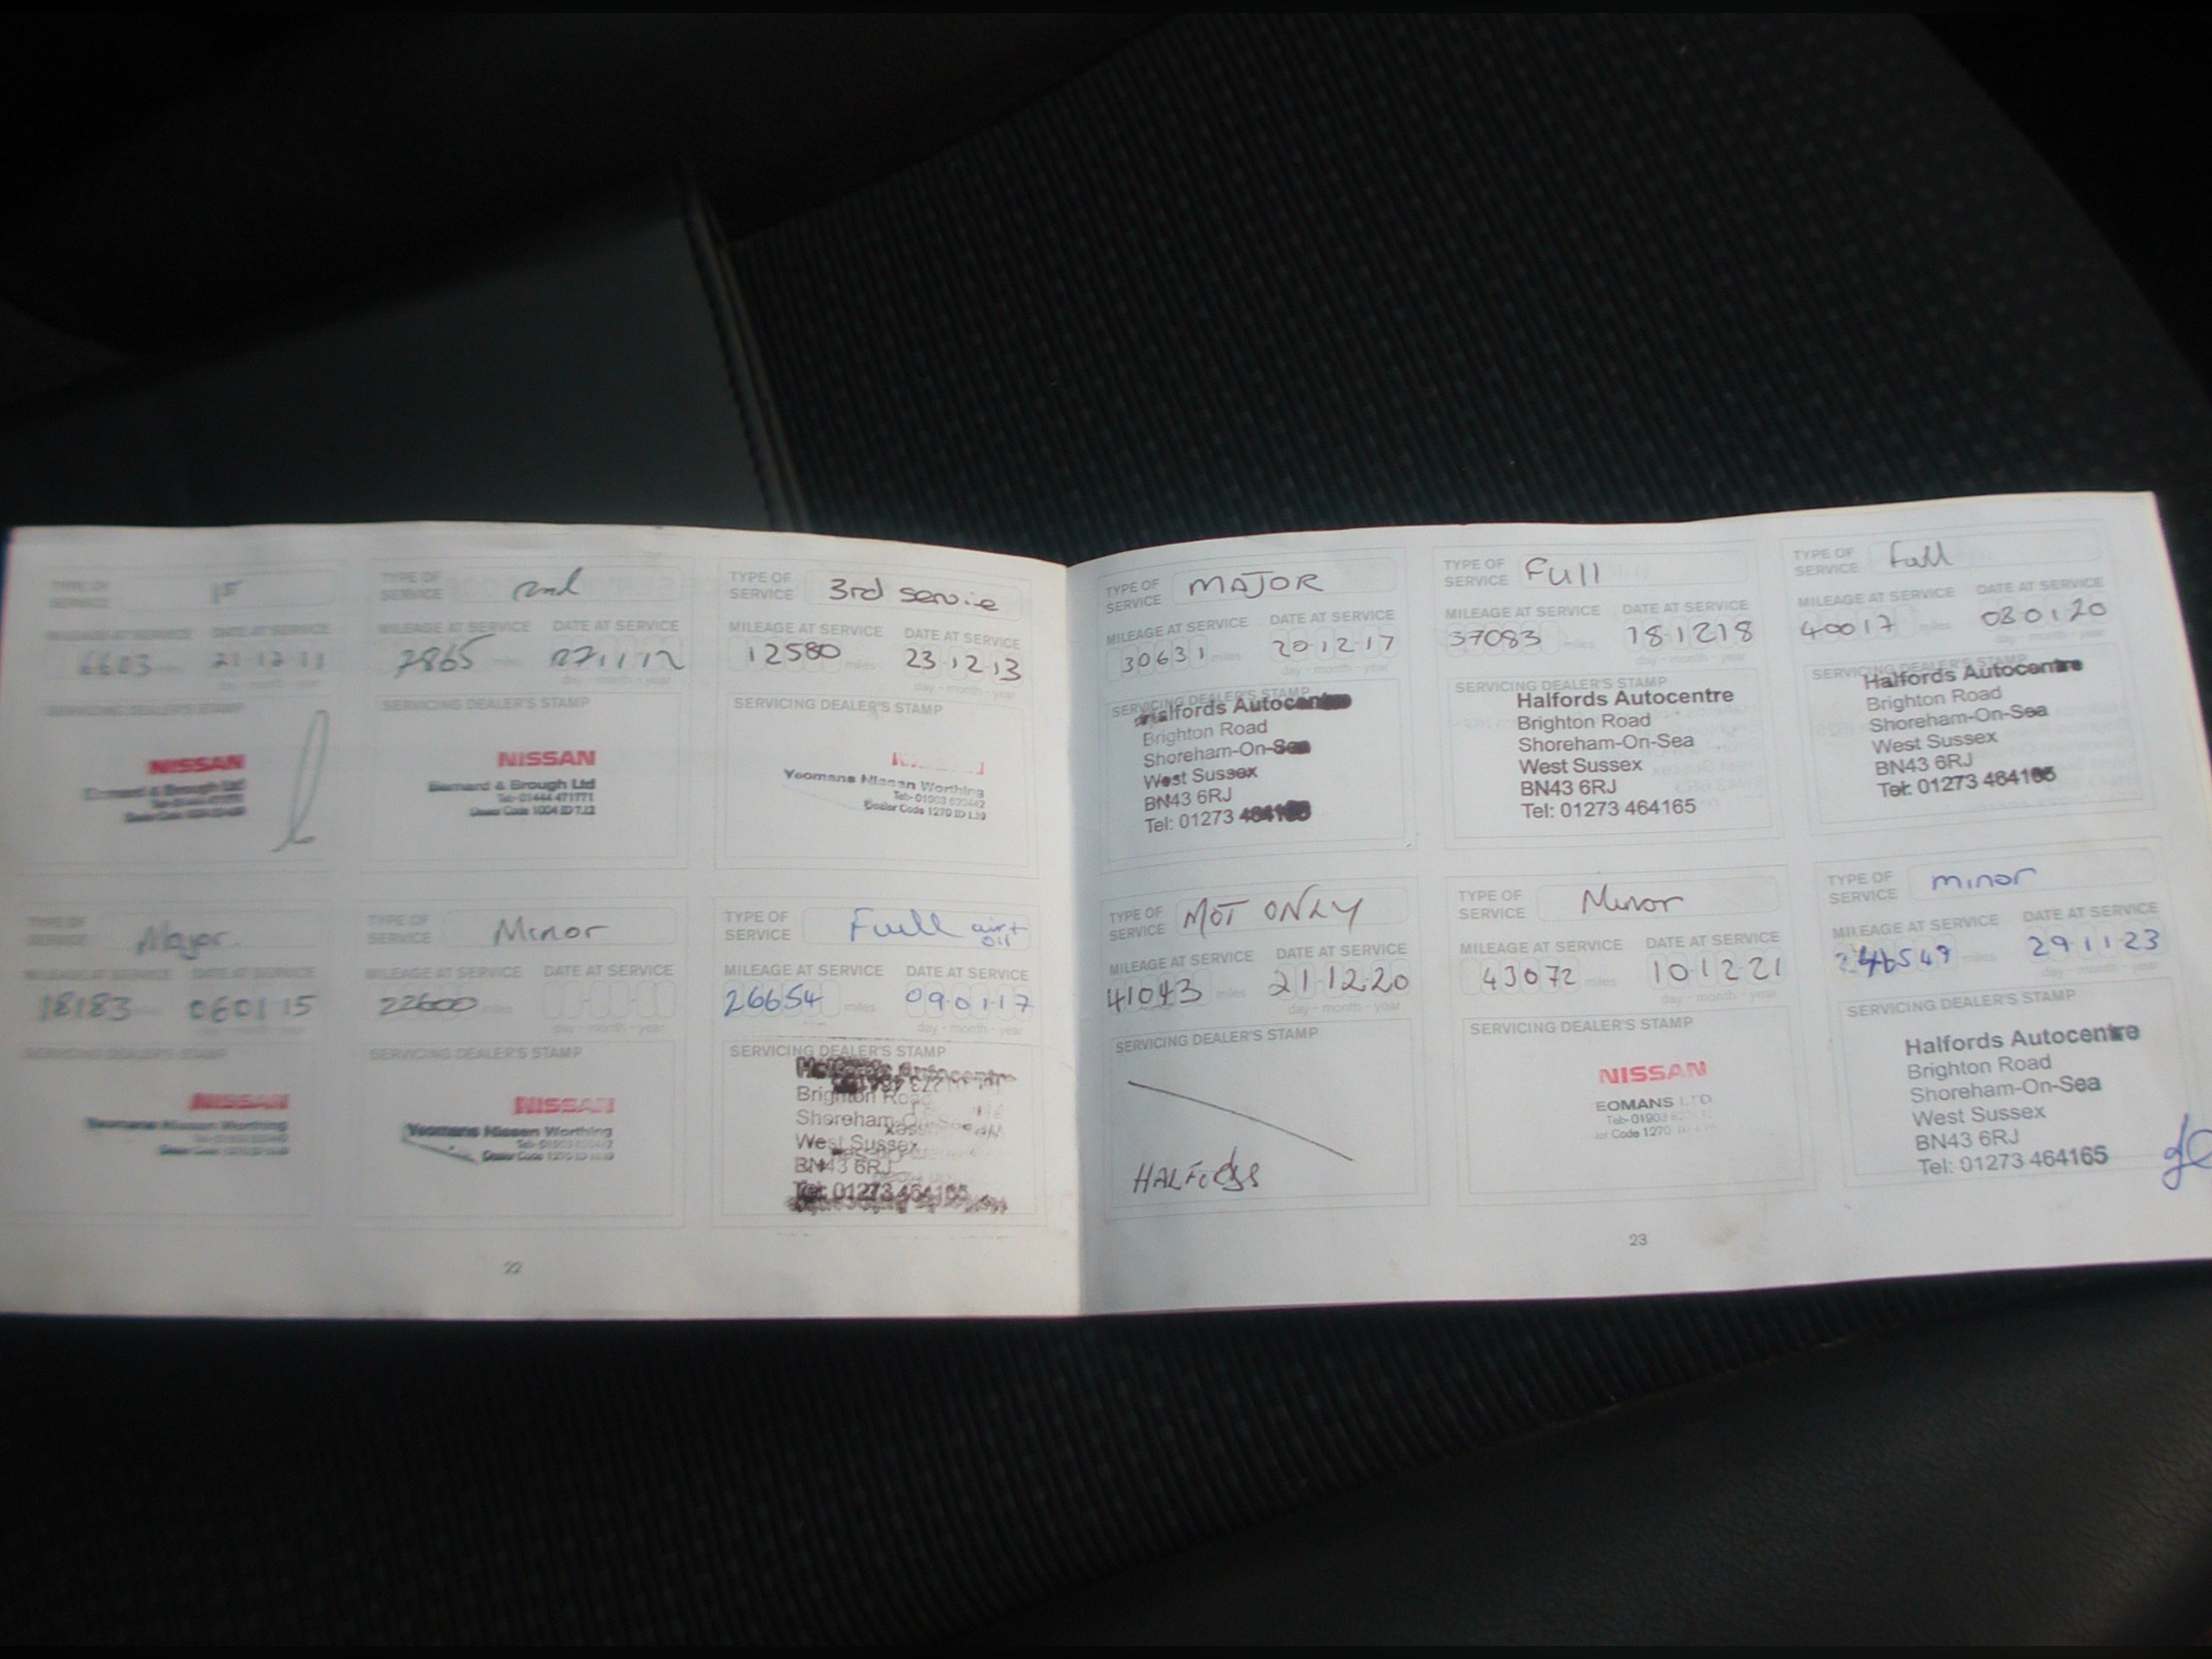 TYPE OF SERVICE 1st
MILEAGE AT SERVICE DATE AT SERVICE
6603 miles 21·12·11
day - month - year
SERVICING DEALER'S STAMP
NISSAN
Barnard & Brough Ltd
TYPE OF SERVICE 2nd
MILEAGE AT SERVICE DATE AT SERVICE
7865 miles 271112
day - month - year
SERVICING DEALER'S STAMP
NISSAN
Barnard & Brough Ltd
Tel:-01444 471771
Dealer Code 1004 ID 7.12
TYPE OF SERVICE 3rd servie
MILEAGE AT SERVICE DATE AT SERVICE
12580 miles 23·12·13
day - month - year
SERVICING DEALER'S STAMP
Yeomans Nissan Worthing
Dealer Code 1270
TYPE OF SERVICE Major
MILEAGE AT SERVICE DATE AT SERVICE
18183 060115
SERVICING DEALER'S STAMP
NISSAN
Yeomans Nissan Worthing
TYPE OF SERVICE Minor
MILEAGE AT SERVICE DATE AT SERVICE
22600 miles
day - month - year
SERVICING DEALER'S STAMP
NISSAN
Yeomans Nissan Worthing
Dealer Code 1270
TYPE OF SERVICE Full air + oil
MILEAGE AT SERVICE DATE AT SERVICE
26654 miles 09·01·17
day - month - year
SERVICING DEALER'S STAMP
Halfords Autocentre
Brighton Road
Shoreham-On-Sea
West Sussex
BN43 6RJ
Tel: 01273 464165
22
TYPE OF SERVICE MAJOR
MILEAGE AT SERVICE DATE AT SERVICE
30631 miles 20·12·17
day - month - year
SERVICING DEALER'S STAMP
Halfords Autocentre
Brighton Road
Shoreham-On-Sea
West Sussex
BN43 6RJ
Tel: 01273 464165
TYPE OF SERVICE Full
MILEAGE AT SERVICE DATE AT SERVICE
37083 miles 18·12·18
day - month - year
SERVICING DEALER'S STAMP
Halfords Autocentre
Brighton Road
Shoreham-On-Sea
West Sussex
BN43 6RJ
Tel: 01273 464165
TYPE OF SERVICE Full
MILEAGE AT SERVICE DATE AT SERVICE
40017 miles 080120
day - month - year
SERVICING DEALER'S STAMP
Halfords Autocentre
Brighton Road
Shoreham-On-Sea
West Sussex
BN43 6RJ
Tel: 01273 464165
TYPE OF SERVICE MOT ONLY
MILEAGE AT SERVICE DATE AT SERVICE
41043 miles 21·12·20
day - month - year
SERVICING DEALER'S STAMP
HALFORDS
TYPE OF SERVICE Minor
MILEAGE AT SERVICE DATE AT SERVICE
43072 miles 10·12·21
day - month - year
SERVICING DEALER'S STAMP
NISSAN
EOMANS LTD
Code 1270
TYPE OF SERVICE minor
MILEAGE AT SERVICE DATE AT SERVICE
46549 miles 29·11·23
day - month - year
SERVICING DEALER'S STAMP
Halfords Autocentre
Brighton Road
Shoreham-On-Sea
West Sussex
BN43 6RJ
Tel: 01273 464165
23